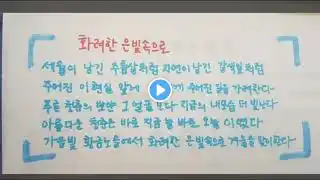 화려한 은빛속으로
세월이 남긴 주름살처럼 자연이 남긴 갈색잎처럼
주어진 이 현실 앞에 주어진 길을 가련한다
푸른 청춘의 뽀얀 그 얼굴 보다 지금의 내모습 더 빛난다
아름다운 청춘은 바로 지금 늘 바로 오늘 이였다
가을빛 황금노을에서 화려한 은빛속으로 겨울을